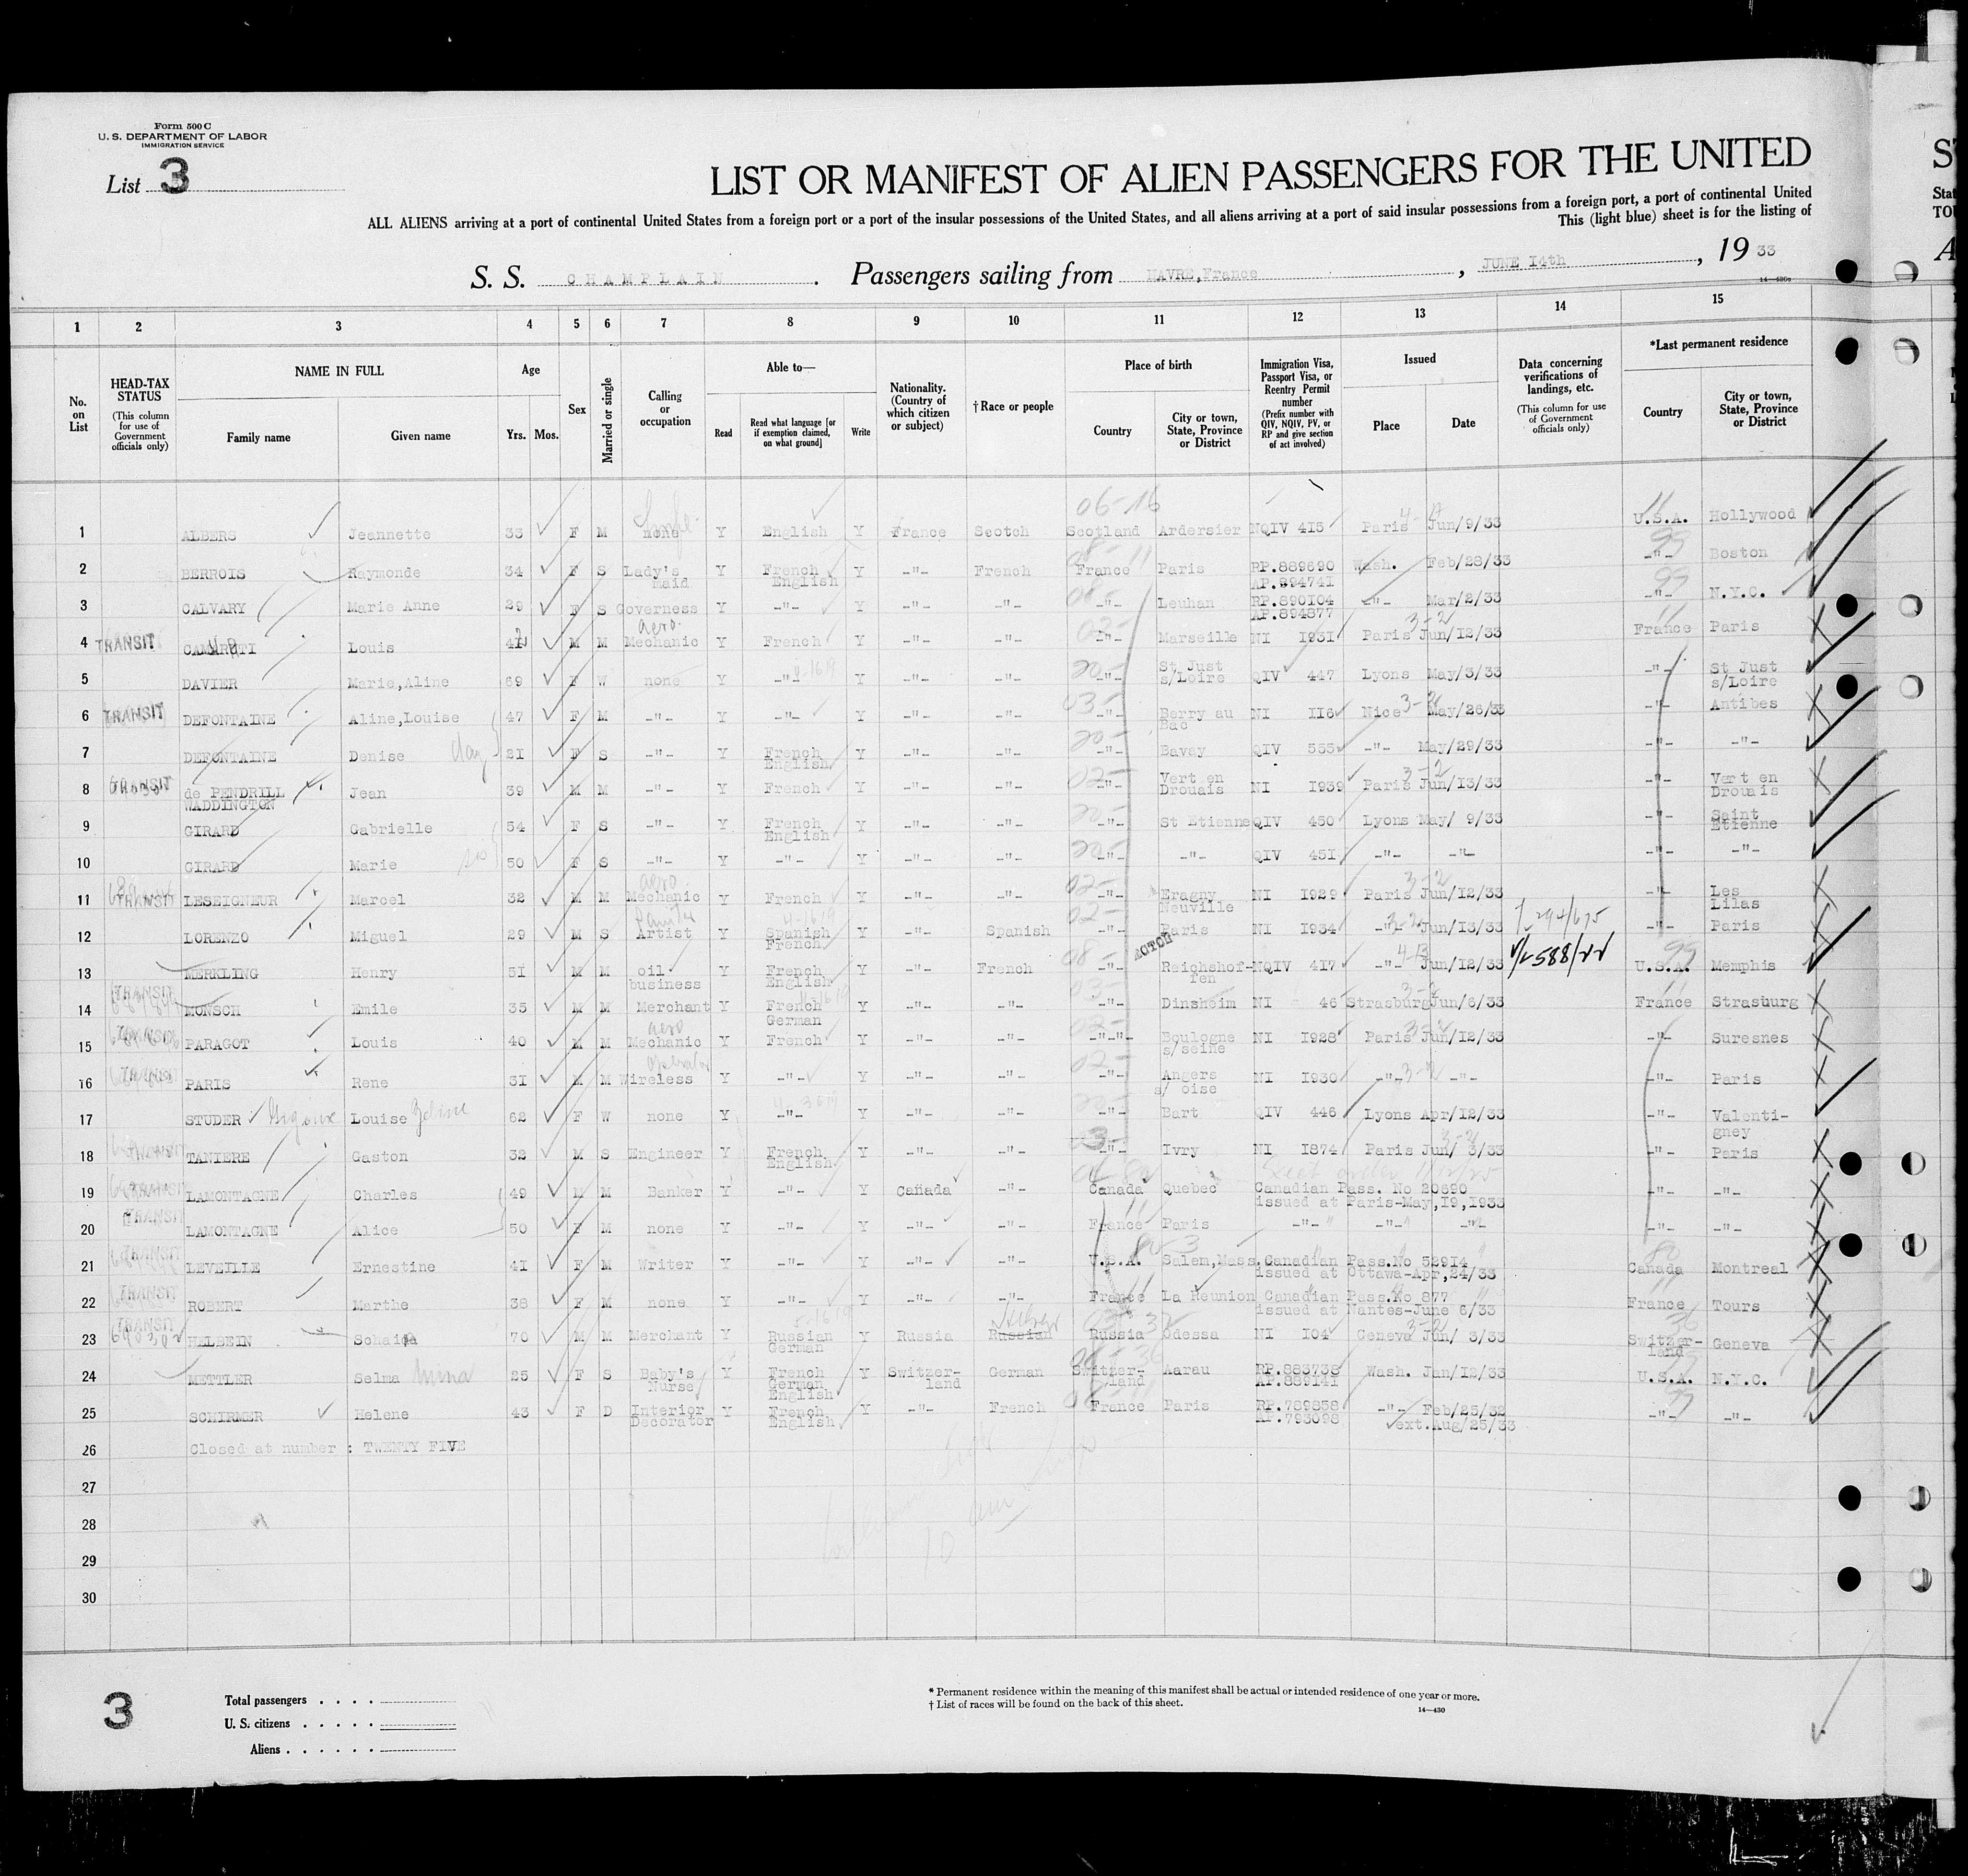 Form 500 C
U. S. DEPARTMENT OF LABOR
IMMIGRATION SERVICE
List 3
LIST OR MANIFEST OF ALIEN PASSENGERS FOR THE UNITED
ALL ALIENS arriving at a port of continental United States from a foreign port or a port of the insular possessions of the United States, and all aliens arriving at a port of said insular possessions from a foreign port, a port of continental United
This (light blue) sheet is for the listing of
S. S. CHAMPLAIN. Passengers sailing from HAVRE,France, JUNE I4th, 19 33
1 2 3 4 5 6 7 8 9 10 11 12 13 14 15
No. on List
HEAD-TAX STATUS (This column for use of Government officials only)
NAME IN FULL Family name Given name
Age Yrs. Mos.
Sex
Married or single
Calling or occupation
Able to— Read Read what language [or if exemption claimed, on what ground] Write
Nationality. (Country of which citizen or subject)
† Race or people
Place of birth Country City or town, State, Province or District
Immigration Visa, Passport Visa, or Reentry Permit number (Prefix number with QIV, NQIV, PV, or RP and give section of act involved)
Issued Place Date
Data concerning verifications of landings, etc. (This column for use of Government officials only)
*Last permanent residence Country City or town, State, Province or District
1 ALBERS Jeannette 33 F M none Y English Y France Scotch Scotland Ardersier NQIV 4I5 Paris Jun/9/33 U.S.A. Hollywood
2 BERROIS Raymonde 34 F S Lady's Maid Y French English Y -"- French France Paris RP.889690 AP.894741 Wash. Feb/28/33 -"- Boston
3 CALVARY Marie Anne 29 F S Governess Y -"- Y -"- -"- -"- Leuhan RP.890I04 AP.894877 -"- Mar/2/33 -"- N.Y.C.
4 TRANSIT Louis M M aero. Mechanic Y French Y -"- -"- -"- Marseille NI I93I Paris Jun/I2/33 France Paris
5 DAVIER Marie,Aline 69 F W none Y -"- Y -"- -"- -"- St Just s/Loire QIV 447 Lyons May/3/33 -"- St Just s/Loire
6 TRANSIT DEFONTAINE Aline,Louise 47 F M -"- Y -"- Y -"- -"- -"- Berry au Bac NI II6 Nice May/26/33 -"- Antibes
7 DEFONTAINE Denise 2I F S -"- Y French English Y -"- -"- -"- Bavay QIV 555 -"- May/29/33 -"- -"-
8 TRANSIT de PENDRILL WADDINGTON Jean 39 M M -"- Y French Y -"- -"- -"- Vert en Drouais NI I939 Paris Jun/I3/33 -"- Vert en Drouais
9 GIRARD Gabrielle 54 F S -"- Y French English Y -"- -"- -"- St Etienne QIV 450 Lyons May/ 9/33 -"- Saint Etienne
10 GIRARD Marie 50 F S -"- Y -"- Y -"- -"- -"- -"- QIV 45I -"- -"- -"- -"-
11 TRANSIT LESEIGNEUR Marcel 32 M M aero Mechanic Y French Y -"- -"- -"- Eragny Neuville NI I929 Paris Jun/I2/33 -"- Les Lilas
12 LORENZO Miguel 29 M S Artist Y Spanish French Y -"- Spanish -"- Paris NI I934 -"- Jun/I3/33 -"- Paris
13 MERKLING Henry 5I M M oil business Y French English Y -"- French -"- Reichshoffen NQIV 4I7 -"- Jun/I2/33 U.S.A. Memphis
14 TRANSIT MONSCH Emile 35 M M Merchant Y French German Y -"- -"- -"- Dinsheim NI 46 Strasburg Jun/6/33 France Strasburg
15 TRANSIT PARAGOT Louis 40 M M aero Mechanic Y French Y -"- -"- -"- Boulogne s/seine NI I928 Paris Jun/I2/33 -"- Suresnes
16 TRANSIT PARIS Rene 3I M M Wireless operator Y -"- Y -"- -"- -"- Angers s/ oise NI I930 -"- -"- -"- Paris
17 STUDER Louise 62 F W none Y -"- Y -"- -"- -"- Bart QIV 446 Lyons Apr/I2/33 -"- Valentigney
18 TRANSIT TANIERE Gaston 32 M S Engineer Y French English Y -"- -"- -"- Ivry NI I874 Paris Jun/ 3/33 -"- Paris
19 TRANSIT LAMONTAGNE Charles 49 M M Banker Y -"- Y Canada -"- Canada Quebec Canadian Pass. No 20690 issued at Paris-May,I9,I933 -"- -"-
20 TRANSIT LAMONTAGNE Alice 50 F M none Y -"- Y -"- -"- France Paris -"- -"- -"- -"- -"-
21 TRANSIT LEVEILLE Ernestine 4I F M Writer Y -"- Y -"- -"- U.S.A. Salem,Mass. Canadian Pass.No 529I4 issued at Ottawa-Apr,24/33 Canada Montreal
22 TRANSIT ROBERT Marthe 38 F M none Y -"- Y -"- -"- France La Reunion Canadian Pass.No 877 issued at Nantes-June 6/33 France Tours
23 TRANSIT HALBEIN 70 M M Merchant Y Russian German Y Russia Russian Hebrew Russia Odessa NI I04 Geneva Jun/ 3/33 Switzerland Geneva
24 METTLER Selma Mina 25 F S Baby's Nurse Y French German English Y Switzerland German Switzerland Aarau RP.883738 AP.889I4I Wash. Jan/I2/33 U.S.A. N.Y.C.
25 SCHIRMER Helene 43 F D Interior Decorator Y French English Y -"- French France Paris RP.789858 AP.793098 -"- Feb/25/32 ext.Aug/25/33 -"- -"-
26 Closed at number : TWENTY FIVE
27
28
29
30
3
Total passengers . . . .
U. S. citizens . . . . .
Aliens . . . . . .
* Permanent residence within the meaning of this manifest shall be actual or intended residence of one year or more.
† List of races will be found on the back of this sheet.
14—430